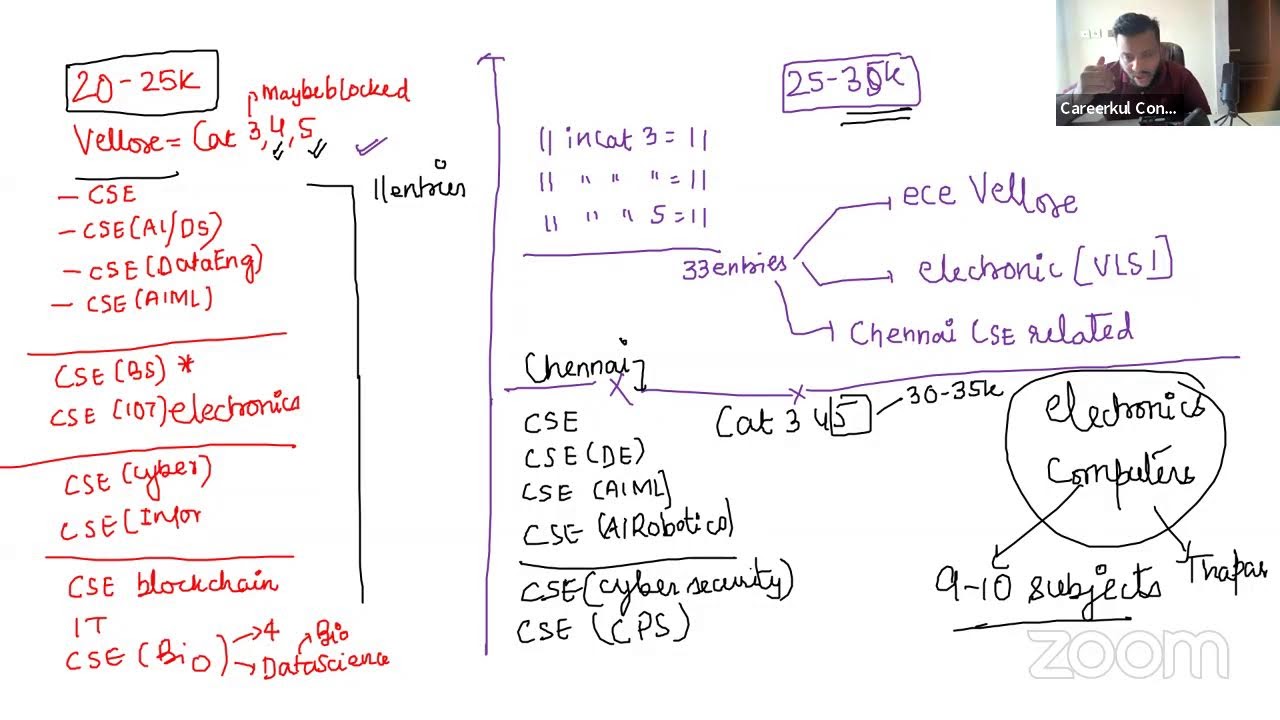 20-25K
Maybeblocked
Vellose = Cat 3,4,5
11 entries
- CSE
- CSE(AI/DS)
- CSE(DataEng)
- CSE(AIML)
CSE(BS) *
CSE (IOT) electronics
CSE (cyber)
CSE (Infor
CSE blockchain
IT
CSE (Bio) → 4
→ Datascience → Bio
25-35k
11 in cat 3 = 11
11 " " " = 11
11 " " 5 = 11
33 entries
ece Vellose
electronic [VLSI]
Chennai CSE related
Chennai]
CSE
CSE (DE)
CSE (AIML]
CSE (AI Robotics)
CSE (cyber security)
CSE (CPS)
Cat 3 4 5
30-35k
electronics
computers
9-10 subjects
Thapar
Careerkul Con...
zoom